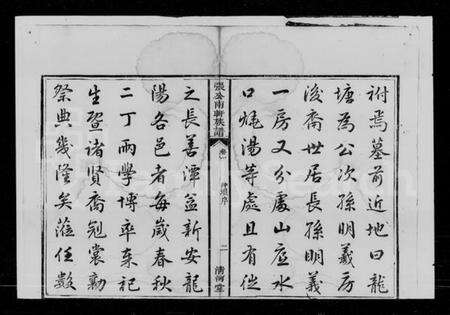 祔焉墓前近地曰龍
塘為公次孫明義房
後裔世居長孫明義
一房又分處山庭水
口堯湯等處且有從
張公南軒族譜
卷
祠規序
二
清河堂
之長善潭益新安龍
陽各邑者每歲春秋
二丁兩學博率奉祀
生暨諸賢裔冠裳勷
祭典幾隆矣蒞任數